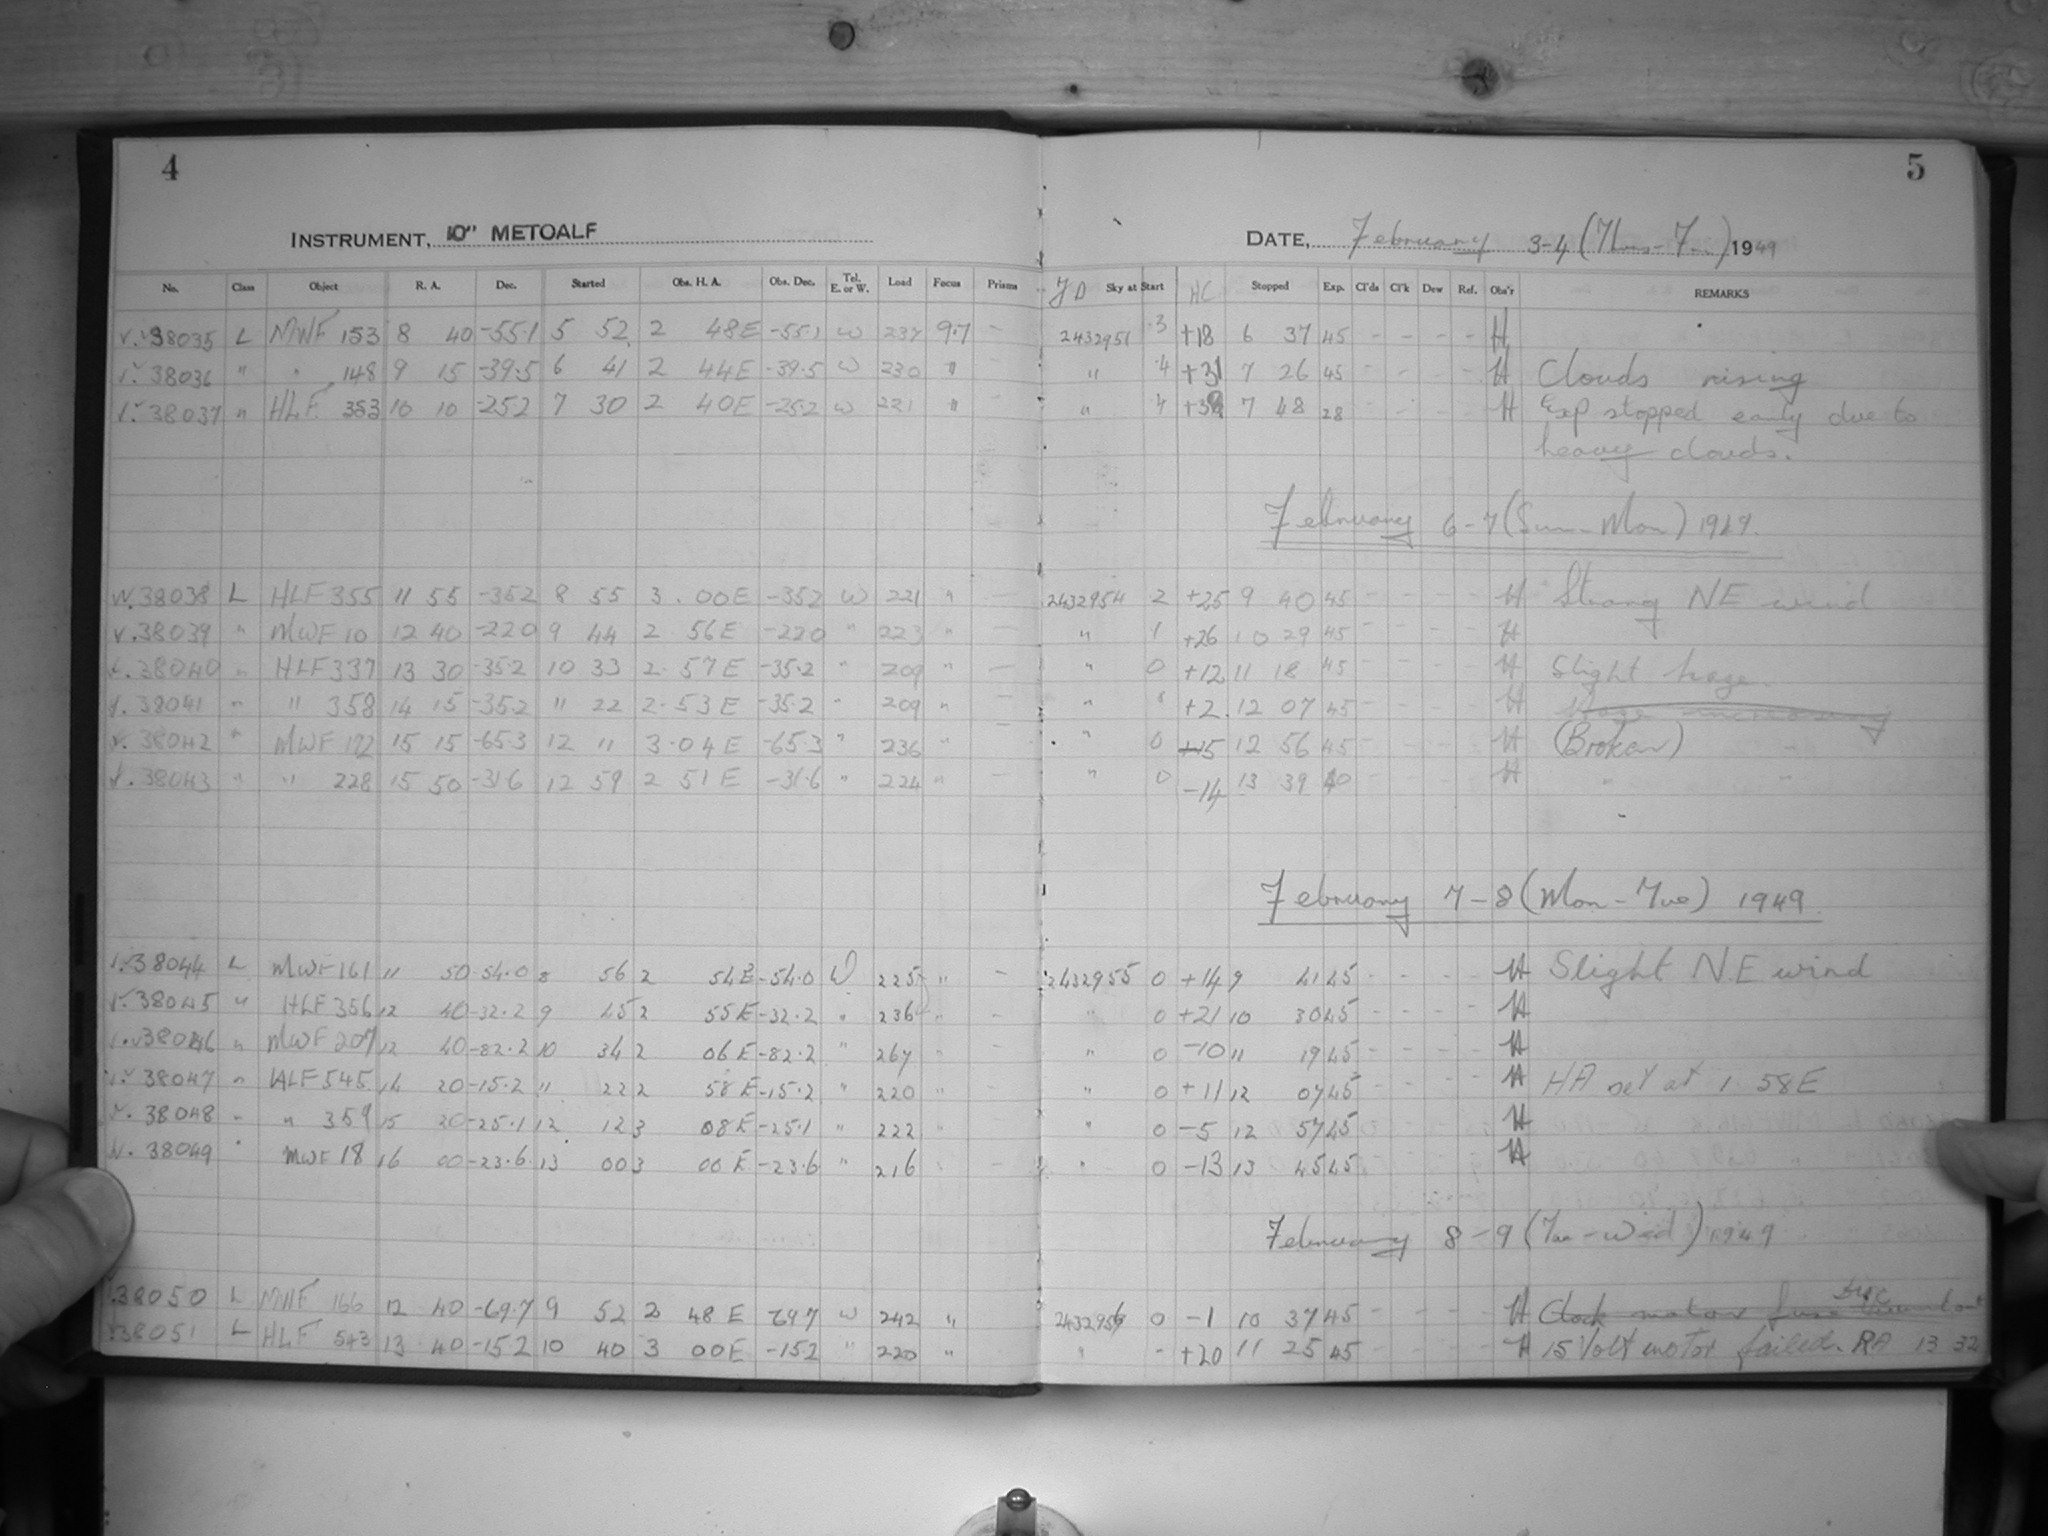 4
5
INSTRUMENT, 10" METCALF
DATE, February 3-4 (Thurs-Fri) 1949
No. Class Object R. A. Dec. Started Obs. H. A. Obs. Dec. Tel. E. or W. Load Focus Prisms JD Sky at Start HC Stopped Exp. Cl'ds Cl'k Dew Ref. Obs'r REMARKS
38035 L MWF 153 8 40 -55.1 5 52 2 48E -55.1 W 237 9.7 - 2432951 .3 +18 6 37 45 - - - - H
38036 " " 148 9 15 -39.5 6 41 2 44E -39.5 W 230 " " .4 +31 7 26 45 - - - - H Clouds rising
38037 " HLF 353 10 10 -252 7 30 2 40E -25.2 W 221 " " .4 7 48 28 - - - - H Exp stopped early due to
heavy clouds.
February 6-7 (Sun-Mon) 1949.
38038 L HLF 355 11 55 -352 8 55 3.00E -352 W 221 " - 2432954 2 +25 9 40 45 - - - - H Strong NE wind
38039 " MWF 10 12 40 -220 9 44 2 56E -220 " 223 " - " 1 +26 10 29 45 - - - - H
38040 " HLF 337 13 30 -35.2 10 33 2.57E -35.2 " 209 " - " 0 +12 11 18 45 - - - - H Slight haze.
38041 " " 358 14 15 -35.2 11 22 2.53E -35.2 " 209 " - " +2 12 07 45 - - - - H Haze increasing
38042 " MWF 172 15 15 -65.3 12 11 3.04E -65.3 " 236 " - " 0 15 12 56 45 - - - - H (Broken) "
38043 " " 228 15 50 -31.6 12 59 2 51E -31.6 " 224 " - " 0 -14 13 39 40 - - - - H " "
February 7-8 (Mon-Tue) 1949
38044 L MWF 161 11 50 -54.0 8 56 2 54E -54.0 W 225 " - 2432955 0 +14 9 41 45 - - - - H Slight N.E wind
38045 " HLF 356 12 40 -32.2 9 45 2 55E -32.2 " 236 " - " 0 +21 10 30 45 - - - - H
38046 " MWF 207 12 40 -82.2 10 34 2 06E -82.2 " 267 " - " 0 -10 11 19 45 - - - - H
38047 " HLF 545 14 20 -15.2 11 22 2 58E -15.2 " 220 " - " 0 +11 12 07 45 - - - - H HA set at 1 58E
38048 " " 359 15 20 -25.1 12 12 3 08E -25.1 " 222 " - " 0 -5 12 57 45 - - - - H
38049 " MWF 18 16 00 -23.6 13 00 3 00E -23.6 " 216 " - " 0 -13 13 45 45 - - - - H
February 8-9 (Tue-Wed) 1949
38050 L MWF 166 12 40 -69.7 9 52 2 48E 697 W 242 " 2432956 0 -1 10 37 45 - - - - H Clock motor fuse
38051 L HLF 543 13 40 -152 10 40 3 00E -152 " 220 " " - +20 11 25 45 - - - - H 15 Volt motor failed. RA 13 32